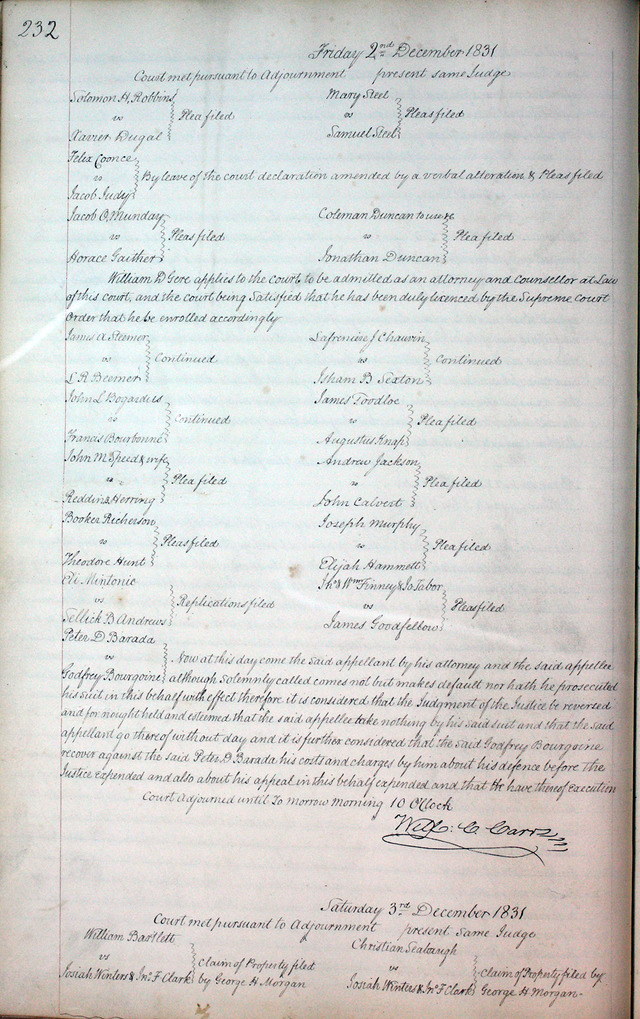 232
Friday 2nd December 1831
Court met pursuant to Adjournment present same Judge
Solomon H. Robbins
vs
Xavier Dugal
Plea filed
Mary Steel
vs
Samuel Steel
Pleas filed
Felix Coonce
vs
Jacob Judy
By leave of the court declaration amended by a verbal alteration & Pleas filed
Jacob O. Munday
vs
Horace Gaither
Pleas filed
Coleman Duncan to use &c
vs
Jonathan Duncan
Plea filed
William D Gere applies to the court to be admitted as an attorney and Counsellor at Law
of this court, and the court being Satisfied that he has been duly licenced by the Supreme Court
Order that he be enrolled accordingly
James A Steemer
vs
L R Beemer
Continued
Lafreniere J Chauvin
vs
Isham B Sexton
Continued
John L Bogardus
vs
Francis Bourbonne
Continued
James Toodloe
vs
Augustus Knap
Plea filed
John M Speed & wife
vs
Reddin Herring
Plea filed
Andrew Jackson
vs
John Calvert
Plea filed
Booker Richerson
vs
Theodore Hunt
Pleas filed
Joseph Murphy
vs
Elijah Hammett
Plea filed
Eli Mintonie
vs
Sellick B Andrews
Replications filed
Wm Finney & Jo Tabor
vs
James Goodfellow
Pleas filed
Peter D Barada
vs
Godfrey Bourgoine
Now at this day come the Said appellant by his attorney and the said appellee
although Solemnly called comes not but makes default nor hath he prosecuted
his suit in this behalf with effect therefore it is considered that the Judgment of the Justice be reversed
and for nought held and esteemed that the said appellee take nothing by his said suit and that the said
appellant go thereof without day and it is further considered that the said Godfrey Bourgoine
recover against the said Peter D. Barada his costs and charges by him about his defence before the
Justice expended and also about his appeal in this behalf expended and that He have thereof execution
Court Adjourned until To morrow Morning 10 OClock
Will: C Carr
Saturday 3rd December 1831
Court met pursuant to Adjournment present Same Judge
William Bartlett
vs
Josiah Winters & Jno F Clark
Claim of Property filed
by George H Morgan
Christian Seabaugh
vs
Josiah Winters & Jno F Clark
Claim of Property filed by
George H Morgan